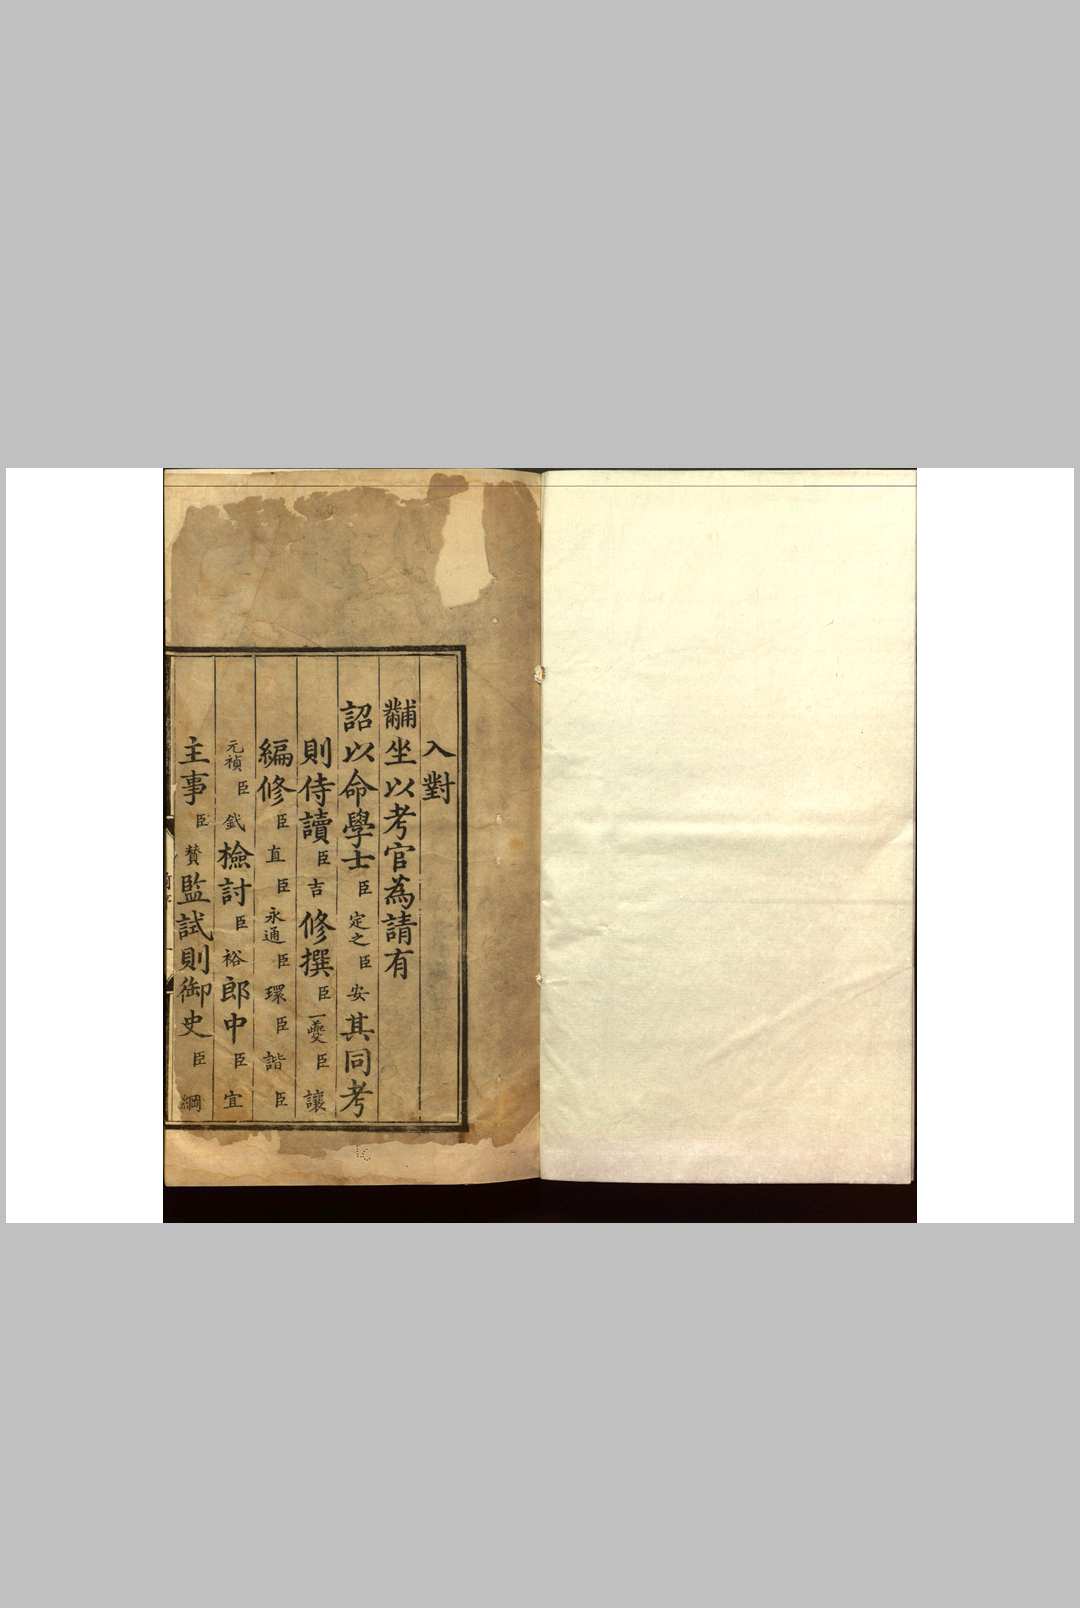 入對
黼坐以考官為請有
詔以命學士臣定之臣安其同考
則侍讀臣吉修撰臣一夔臣讓
編修臣直臣永通臣環臣諧臣
元禎臣鉞檢討臣裕郎中臣宜
主事臣贊監試則御史臣綱